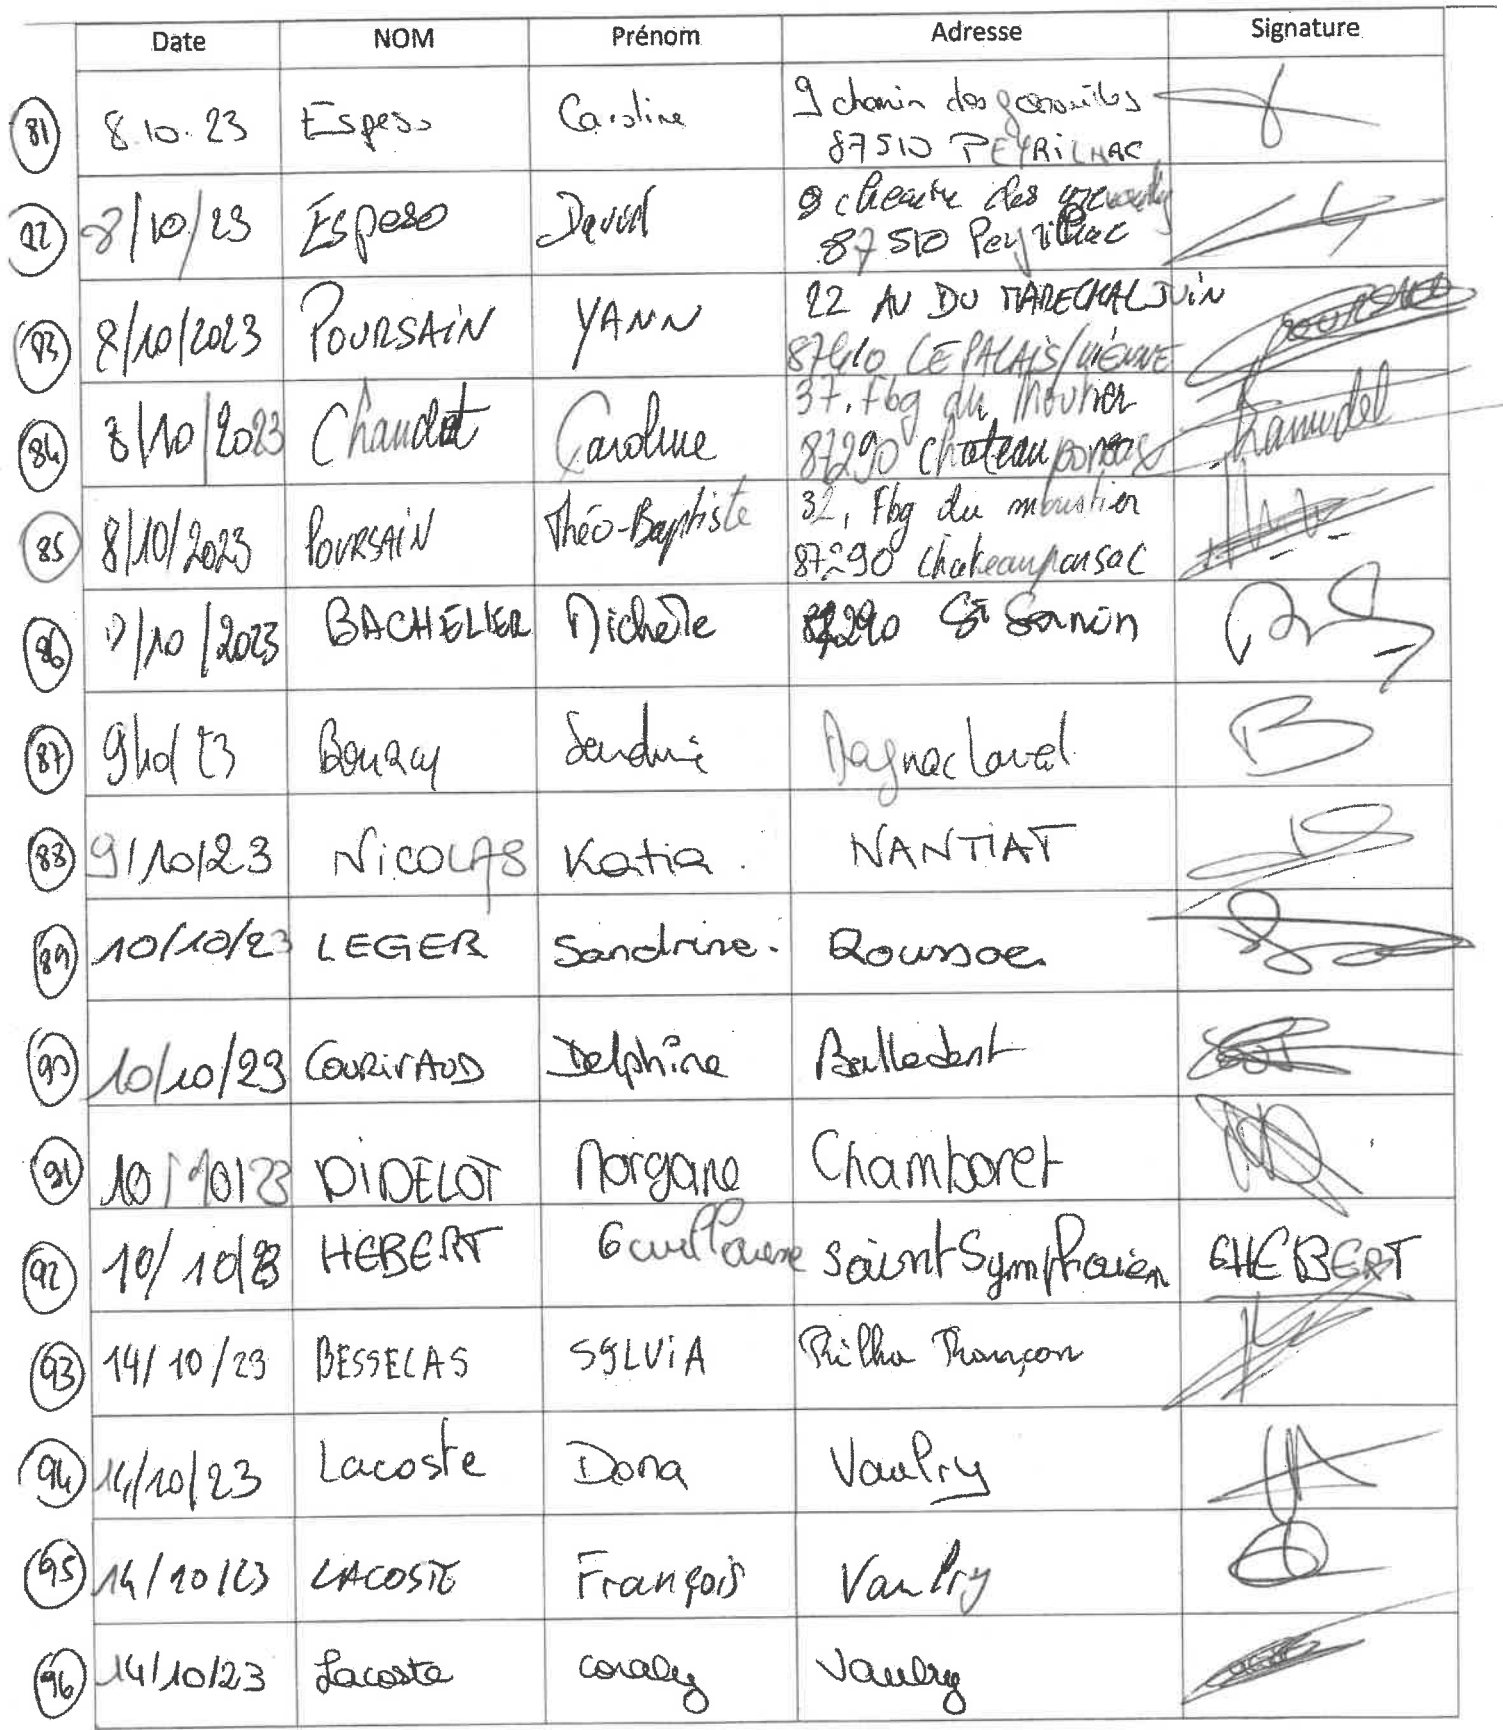 Date NOM Prénom Adresse Signature
81 8.10.23 Espeso Caroline 9 chemin des
87510 PEYRILHAC
82 8/10/23 Espeso David 9 chemin des
87510 Peyrilhac
83 8/10/2023 POURSAIN YANN 22 AV DU MARECHAL JUIN
87410 LE PALAIS/VIENNE
84 8/10/2023 Chaudet Caroline 37, Fbg du Moutier
87290 Chateauponsac
85 8/10/2023 POURSAIN Théo-Baptiste 32, Fbg du moustier
87290 Chateauponsac
86 /10/2023 BACHELIER Michèle 87290 St Sornin
87 9/10/23 Sandrine Magnac Laval
88 9/10/23 NICOLAS Katia NANTIAT
89 10/10/23 LEGER Sandrine Roussac
90 10/10/23 COURIVAUD Delphine Balledent
91 10/10/23 DIDELOT Morgane Chamboret
92 10/10/23 HEBERT Guillaume Saint Symphorien GHEBERT
93 14/10/23 BESSELAS SYLVIA Rilhac Rançon
94 14/10/23 Lacoste Dona Vaulry
95 14/10/23 LACOSTE François Vaulry
96 14/10/23 Lacoste coraly Vaulry